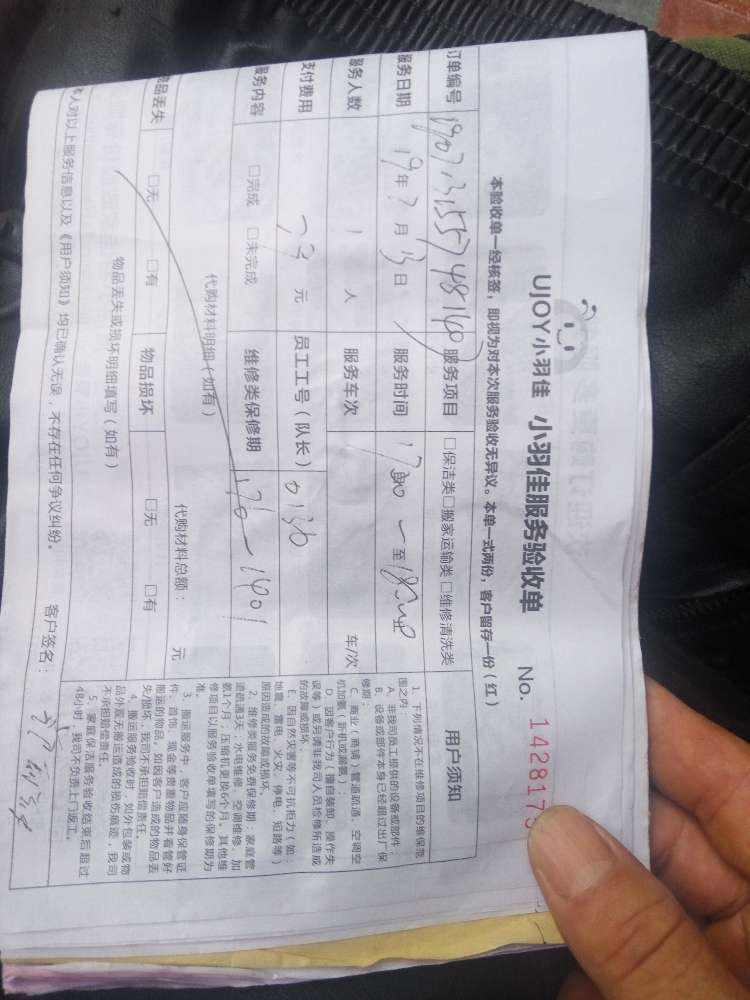 UJOY小羽佳 小羽佳服务验收单 No. 1428175
本验收单一经核签，即视为对本次服务验收无异议。本单一式两份，客户留存一份（红）
订单编号 服务项目 □保洁类□搬家运输类□维修清洗类
服务日期 19年7月13日 服务时间 至
服务人数 1 人 服务车次 车/次
支付费用 元 员工工号（队长） 0136
服务内容 □完成 □未完成 维修类保修期
代购材料明细（如有） 代购材料总额： 元
物品丢失 □无 □有 物品损坏 □无 □有
物品丢失或损坏明细填写（如有）
本人对以上服务信息以及《用户须知》均已确认无误，不存在任何争议纠纷。 客户签名：
用户须知
1、下列情况不在维修项目的维保范
围之内：
A、非我司员工提供的设备或部件；
B、设备或部件本身已经超过出厂保
修期；
C、商业（商铺）管道疏通、空调空
机加氟（新机或漏氟）；
D、因客户行为（擅自装卸、操作失
误等）或另请非我司人员检修所造成
的故障或损坏。
E、因自然灾害等不可抗拒力（如：
地震、雷电、火灾、停电、短路等）
原因造成的故障或损坏。
2、维修类服务免费保修期：家庭管
道疏通3天、水电维修、空调维修、加
氟1个月、压缩机更换6个月。其他维
修项目以服务验收单填写的保修期为
准。
3、搬运服务中，客户应随身保管证
件、首饰、现金等贵重物品并看管好
搬运的物品，如因客户造成的物品丢
失/损坏，我司不承担赔偿责任。
4、搬运服务验收时，如外包装或物
品外观无搬运造成的损伤痕迹，我司
不承担赔偿责任。
5、家庭保洁服务验收结束后超过
48小时，我司不负责上门返工。